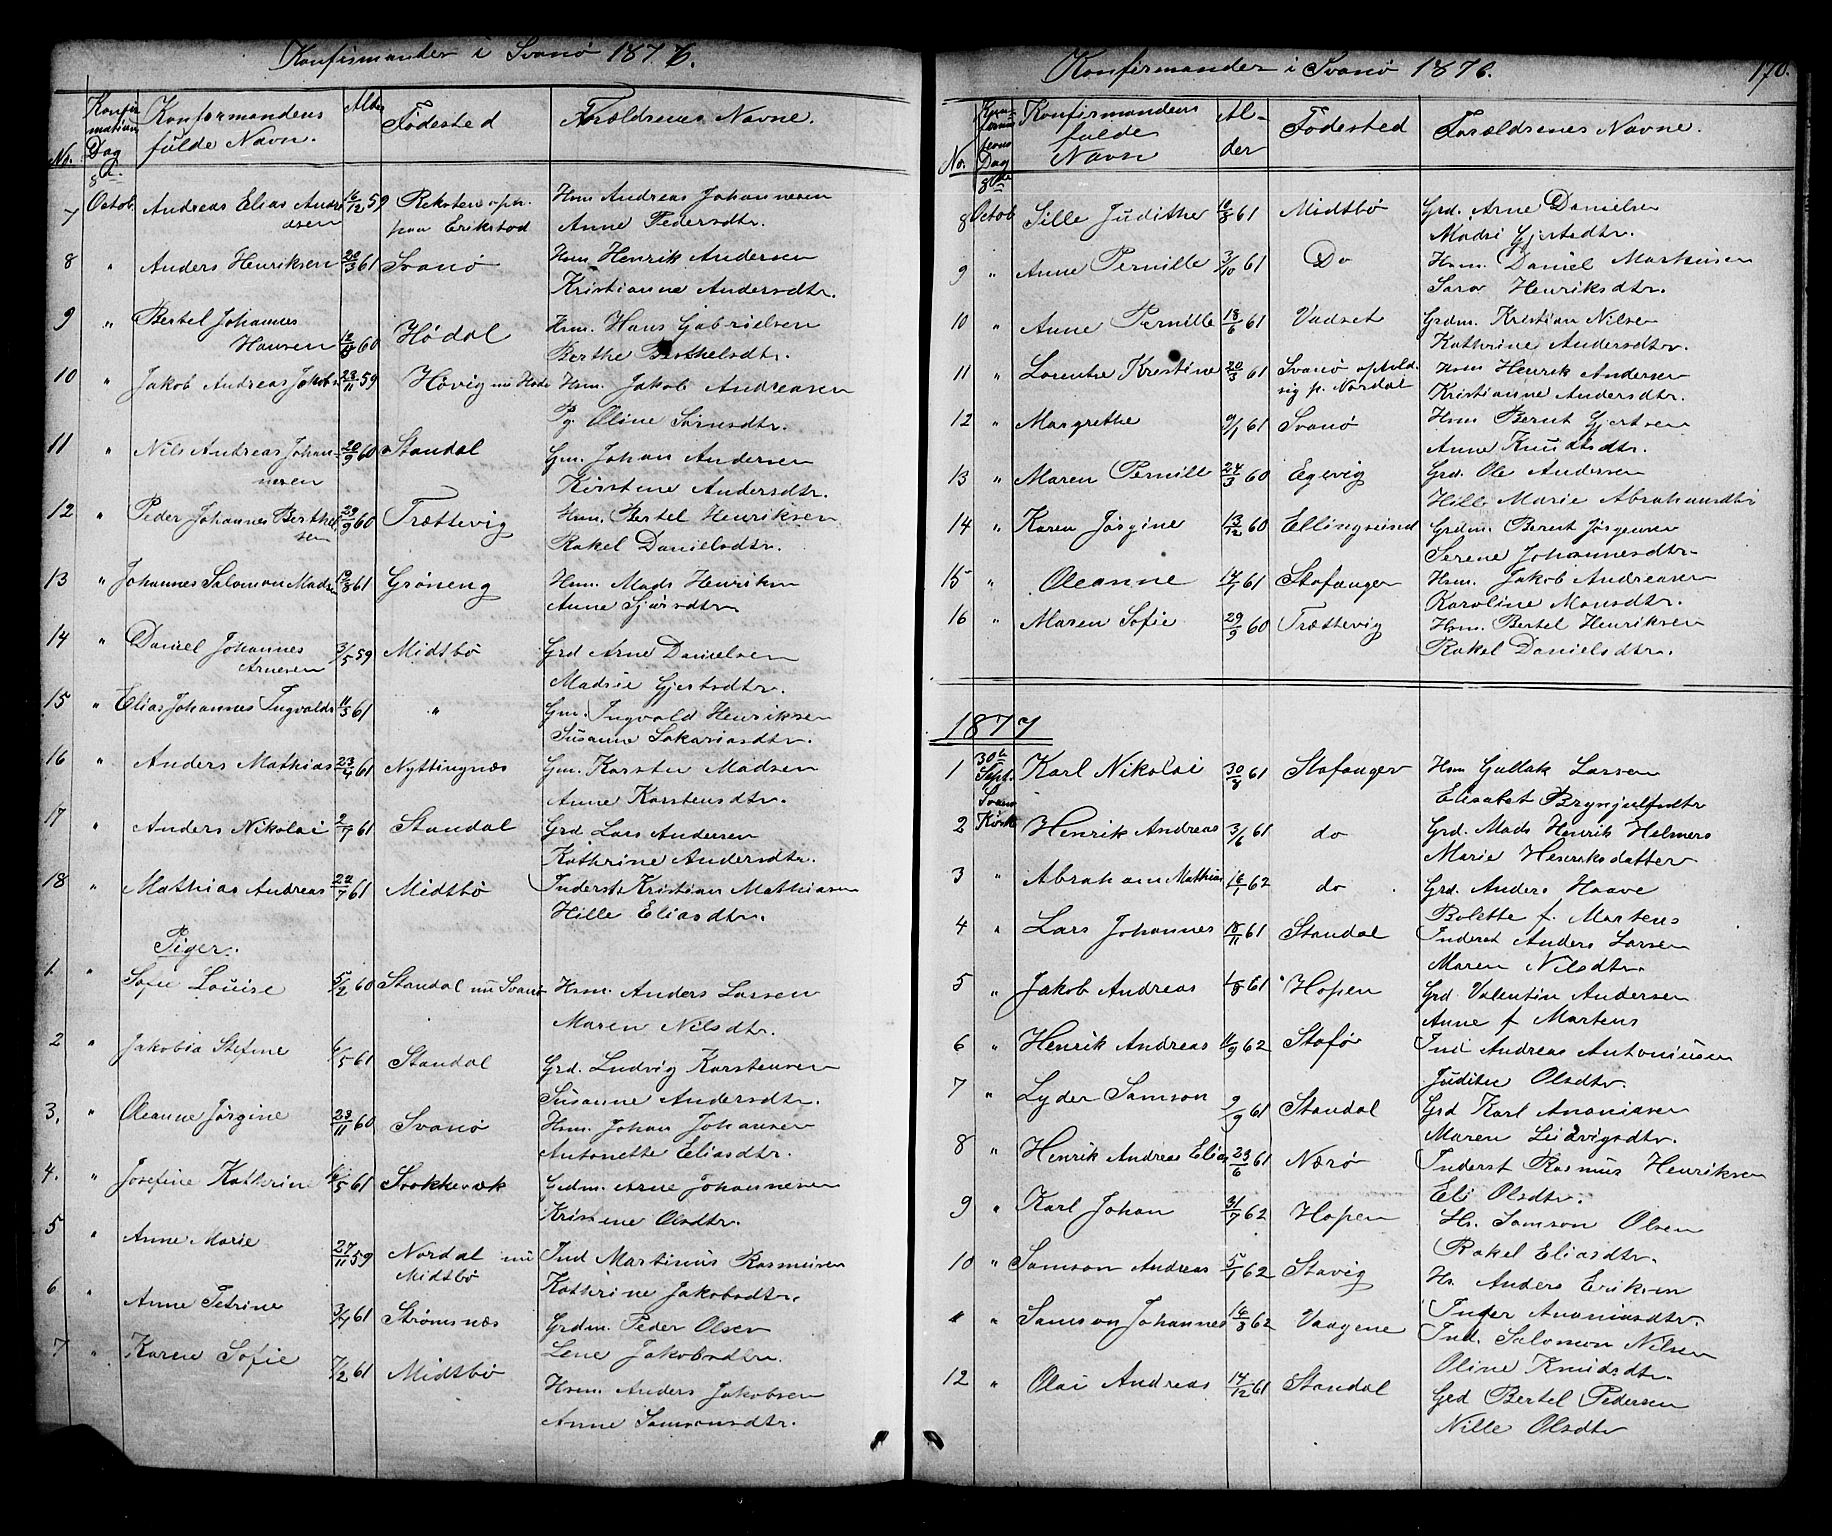 Konfirmander i Svanø 1876.
No.
Konfir
mations
Dag
Konformandens
fulde Navn.
Alder
Fødested
Forældrenes Navne.
8de
7 Octob. Andreas Elias Andre 6/12 59 Reksten oph. Hsm Andreas Johannesen
asen paa Erikstad Anne Pedersdtr.
8 " Anders Henriksen 20/3 61 Svanø Hsm Henrik Andersen
Kristianne Andersdtr.
9 " Bertel Johannes Hsm. Hans Gabrielsen
Hansen 60 Hødal Berthe Berthelsdtr.
10 " Jakob Andreas Jakobs 23/11 59 Høvig nu Hsm. Jakob Andreasen
Pg. Oline
11 " Nils Andreas Johan- 20/9 60 Standal Gm. Johan Andersen
nesen Kirstine Andersdtr.
12 " Peder Johannes Berthel 29/9 60 Trættevig Hsm. Bertel Henriksen
sen Rakel Danielsdtr.
13 " Johannes Salomon Mads 61 Grøneng Hsm. Mads Henriksen
Anne
14 " Daniel Johannes 3/5 59 Midtbø Grd Arne Danielsen
Arnesen Madsie Gjertsdtr.
15 " Elias Johannes Ingvalds 11/3 61 " Gm. Ingvald Henriksen
Susanne Sakariasdtr.
16 " Anders Mathias 23/4 61 Nyttingnæs Gm. Karsten Madsen
Anne Karstensdtr.
17 " Anders Nikolai 2/7 61 Standal Grd. Lars Andersen
Kathrine Andersdtr.
18 " Mathias Andreas 22/7 61 Midtbø Inderst. Kristian Mathiasen
Hille Eliasdtr.
Piger.
1. " Sofie Louise 5/2 60 Standal nu Svanø Hsm. Anders Larsen
Maren Nilsdtr.
2 " Jakobia Stefine 6/5 61 Standal Grd. Ludvig Karstensen
Susanne Andersdtr.
3. " Oleanne Jørgine 23/11 60 Svanø Hsm. Johan Johansen
Antonette Eliasdtr.
4. " Josefine Kathrine 61 Grdm. Arne Johannesen
Kristine Olsdtr.
5 " Anne Marie 27/11 59 Nordal nu Ind Martinus Rasmusen
Midtbø Kathrine Jakobsdtr.
6 " Anne Petrine 3/4 61 Strømsnæs Grdm. Peder Olsen
Lene Jakobsdtr.
7 " Karen Sofie 7/2 61 Midtbø Hsm. Anders Jakobsen
Anne Samsonsdtr.
Konfirmander i Svanø 1876. 170.
No.
Dag
Konfirmandens
fulde
Navn
Al-
der
Fødested
Forældrenes Navne.
8de
8 Octob Sille Judithe 6/8 61 Midtbø Grd. Arne Danielsen
Madsi Gjertsdtr.
9 " Anne Pernille 3/10 61 Do Hsm. Daniel Markusen
Sara Henriksdtr.
10 " Anne Pernille 18/6 61 Vadset Grdm. Kristian Nilsen
Kathrine Andersdtr.
11 " Lorentse Kristine 20/3 61 Svanø ophold Hsm Henrik Andersen
sig p. Nordal Kristianne Andersdtr.
12 " Margrethe 9/1 61 Svanø Hsm Bernt Gjertsen
Anne Knudtsdtr.
13 " Maren Pernille 24/3 60 Egevig Grd. Ole Andersen
Hille Marie Abrahamsdtr
14 " Karen Jørgine 13/12 60 Ellingsund Grdm. Bernt Jørgensen
Serene Johannesdtr
15 " Oleanne 14/1 61 Stafanger Hsm. Jakob Andreasen
Karoline Monsdtr.
16 " Maren Sofie 29/9 60 Trættevig Hsm. Bertel Henriksen
Rakel Danielsdtr.
1877
30te
Sept.
Svanø
Kirke
1 Karl Nikolai 61 Stafanger Hsm Gullak Larsen
Elisabet Brynjulfsdtr
2 Henrik Andreas 3/6 61 do Grd. Mads Henrik Helmers
Marie Henriksdatter
3 " Abraham Mathias 18/1 62 do Grd. Anders Haave
Bolette f. Martens
4 " Lars Johannes 18/11 61 Standal Inderst Anders Larsen
Maren Nilsdtr.
5 " Jakob Andreas 61 Hopen Grd. Valentin Andersen
Anne f Martens
6 " Henrik Andreas 11/9 62 Stafø Ind Andreas Antoniusen
Judithe Olsdtr.
7 " Lyder Samson 9/9 61 Standal Grd Karl Ananiasen
Maren Ludvigsdtr.
8 " Henrik Andreas Elias 23/6 61 Nærø Inderst Rasmus Henriksen
Eli Olsdtr.
9 " Karl Johan 31/7 62 Hopen Hs. Samson Olsen
Rakel Eliasdtr.
10 " Samson Andreas 5/1 62 Stavig Hs. Anders Eriksen
Inger Ananiasdtr.
" " Samson Johannes 16/3 62 Vaagene Ind. Salomon Nilsen
Oline Knudsdtr.
12 " Olai Andreas 14/12 61 Standal Grd Bertel Pedersen
Nille Olsdtr